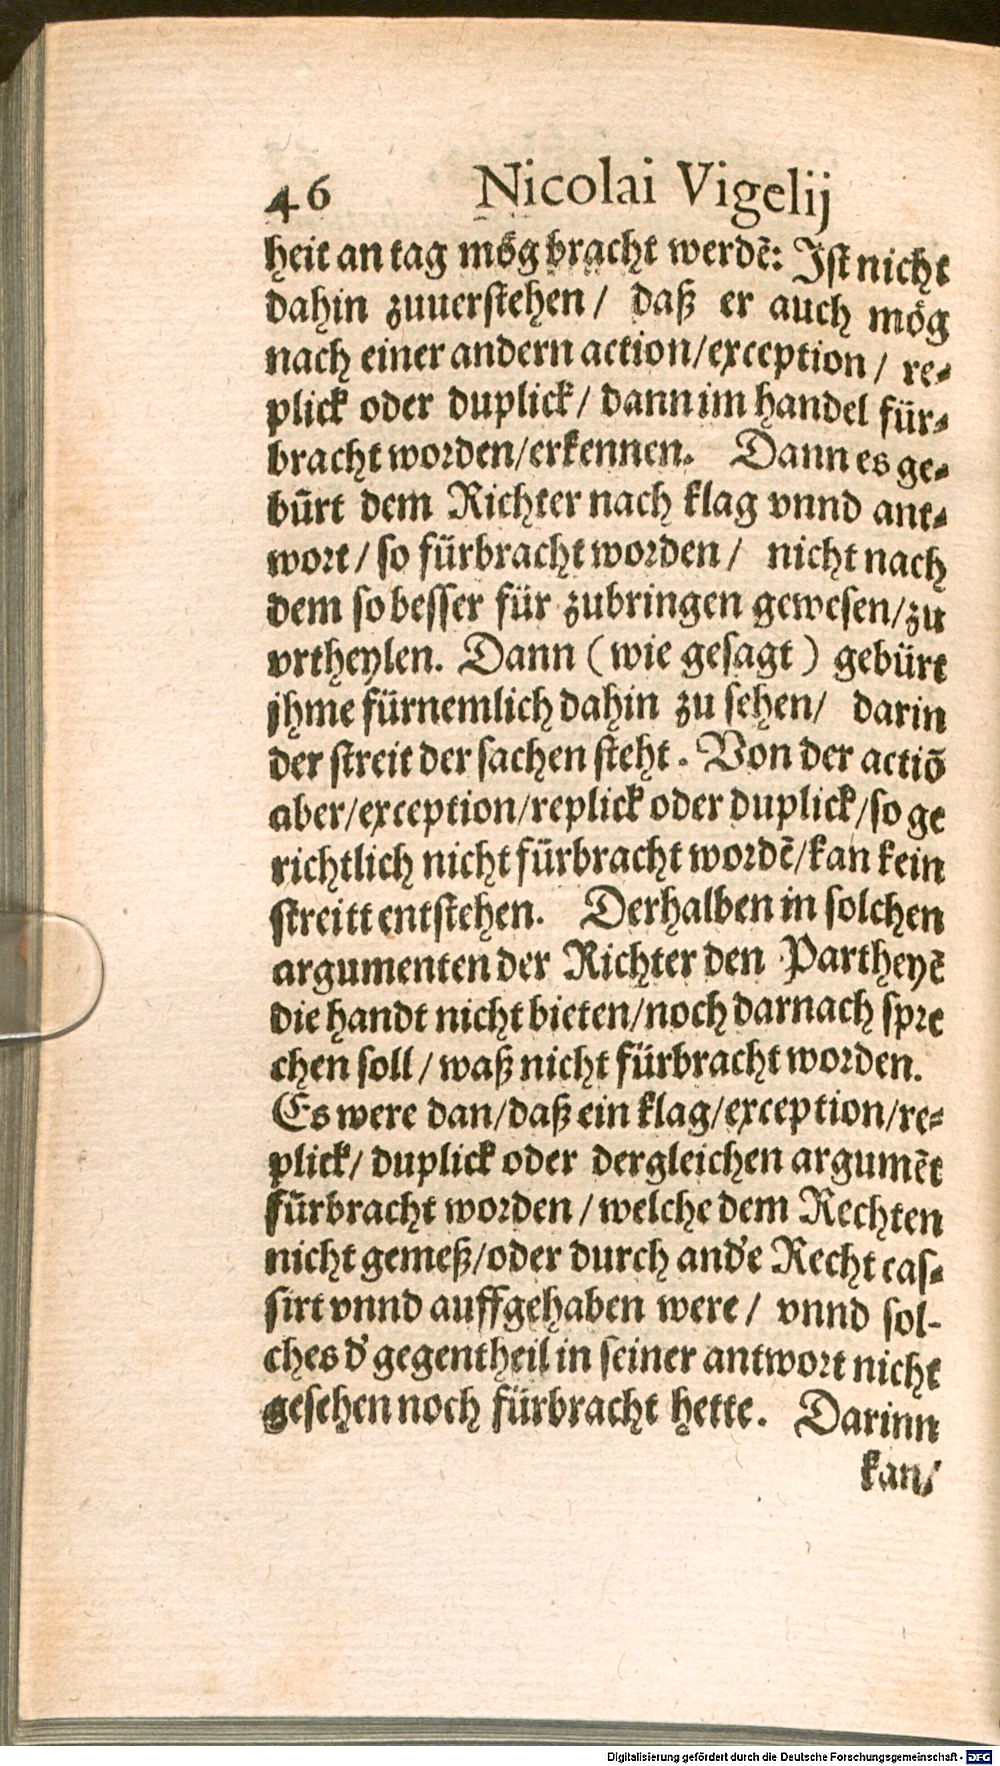 46 Nicolai Vigelij
heit an tag mög bracht werdē: Ist nicht
dahin zuuerstehen / daß er auch mög
nach einer andern action/exception / re-
plick oder duplick / dann im handel für-
bracht worden/erkennen. Dann es ge-
bürt dem Richter nach klag vnnd ant-
wort / so fürbracht worden / nicht nach
dem so besser für zubringen gewesen/zu
vrtheylen. Dann (wie gesagt) gebürt
jhme fürnemlich dahin zu sehen / darin
der streit der sachen steht. Von der actiō
aber/exception/replick oder duplick/so ge
richtlich nicht fürbracht wordē/kan kein
streitt entstehen. Derhalben in solchen
argumenten der Richter den Partheyē
die handt nicht bieten/noch darnach spre
chen soll / waß nicht fürbracht worden.
Es were dan/daß ein klag/exception/re-
plick/ duplick oder dergleichen argumēt
fürbracht worden / welche dem Rechten
nicht gemeß/oder durch and'e Recht cas-
sirt vnnd auffgehaben were / vnnd sol-
ches d' gegentheil in seiner antwort nicht
gesehen noch fürbracht hette. Darinn
kan/
Digitalisierung gefördert durch die Deutsche Forschungsgemeinschaft - DFG